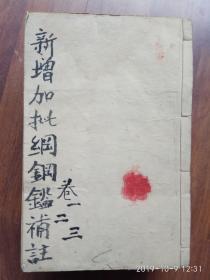 新增加批綱鋼鑑補註
卷一二三
2019-10-9 12:31